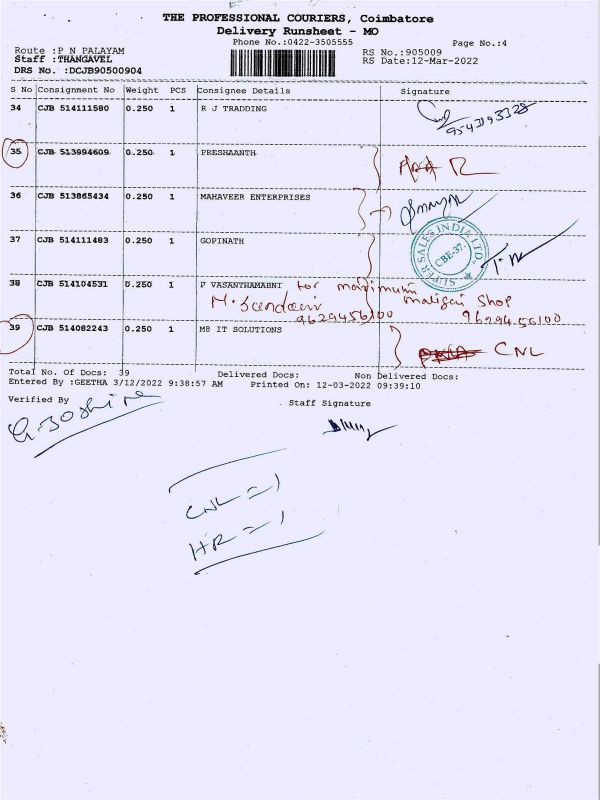 THE PROFESSIONAL COURIERS, Coimbatore
Delivery Runsheet - MO
Phone No.:0422-3505555
Page No.:4
Route :P N PALAYAM
RS No.:905009
Staff :THANGAVEL
RS Date:12-Mar-2022
DRS No. :DCJB90500904
S No Consignment No Weight PCS Consignee Details Signature
34 CJB 514111580 0.250 1 R J TRADDING
9543193328
35 CJB 513994609 0.250 1 PRESHAANTH
R
36 CJB 513865434 0.250 1 MAHAVEER ENTERPRISES
37 CJB 514111483 0.250 1 GOPINATH
SUPER SALES INDIA LTD. CBE-37.
38 CJB 514104531 0.250 1 P VASANTHAMABNI for
M. Sundari maligai Shop
9629456100 9629456100
39 CJB 514082243 0.250 1 M8 IT SOLUTIONS
CNL
Total No. Of Docs: 39 Delivered Docs: Non Delivered Docs:
Entered By :GEETHA 3/12/2022 9:38:57 AM Printed On: 12-03-2022 09:39:10
Verified By
Staff Signature
CNL = 1
HR = 1